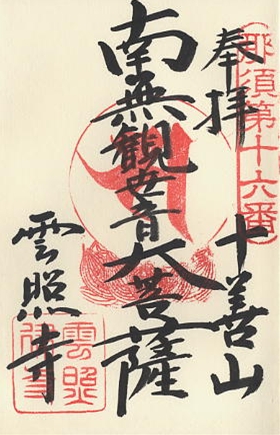 那須第十六番
奉拝
十善山
南無観世音大菩薩
雲照寺
雲照
寺